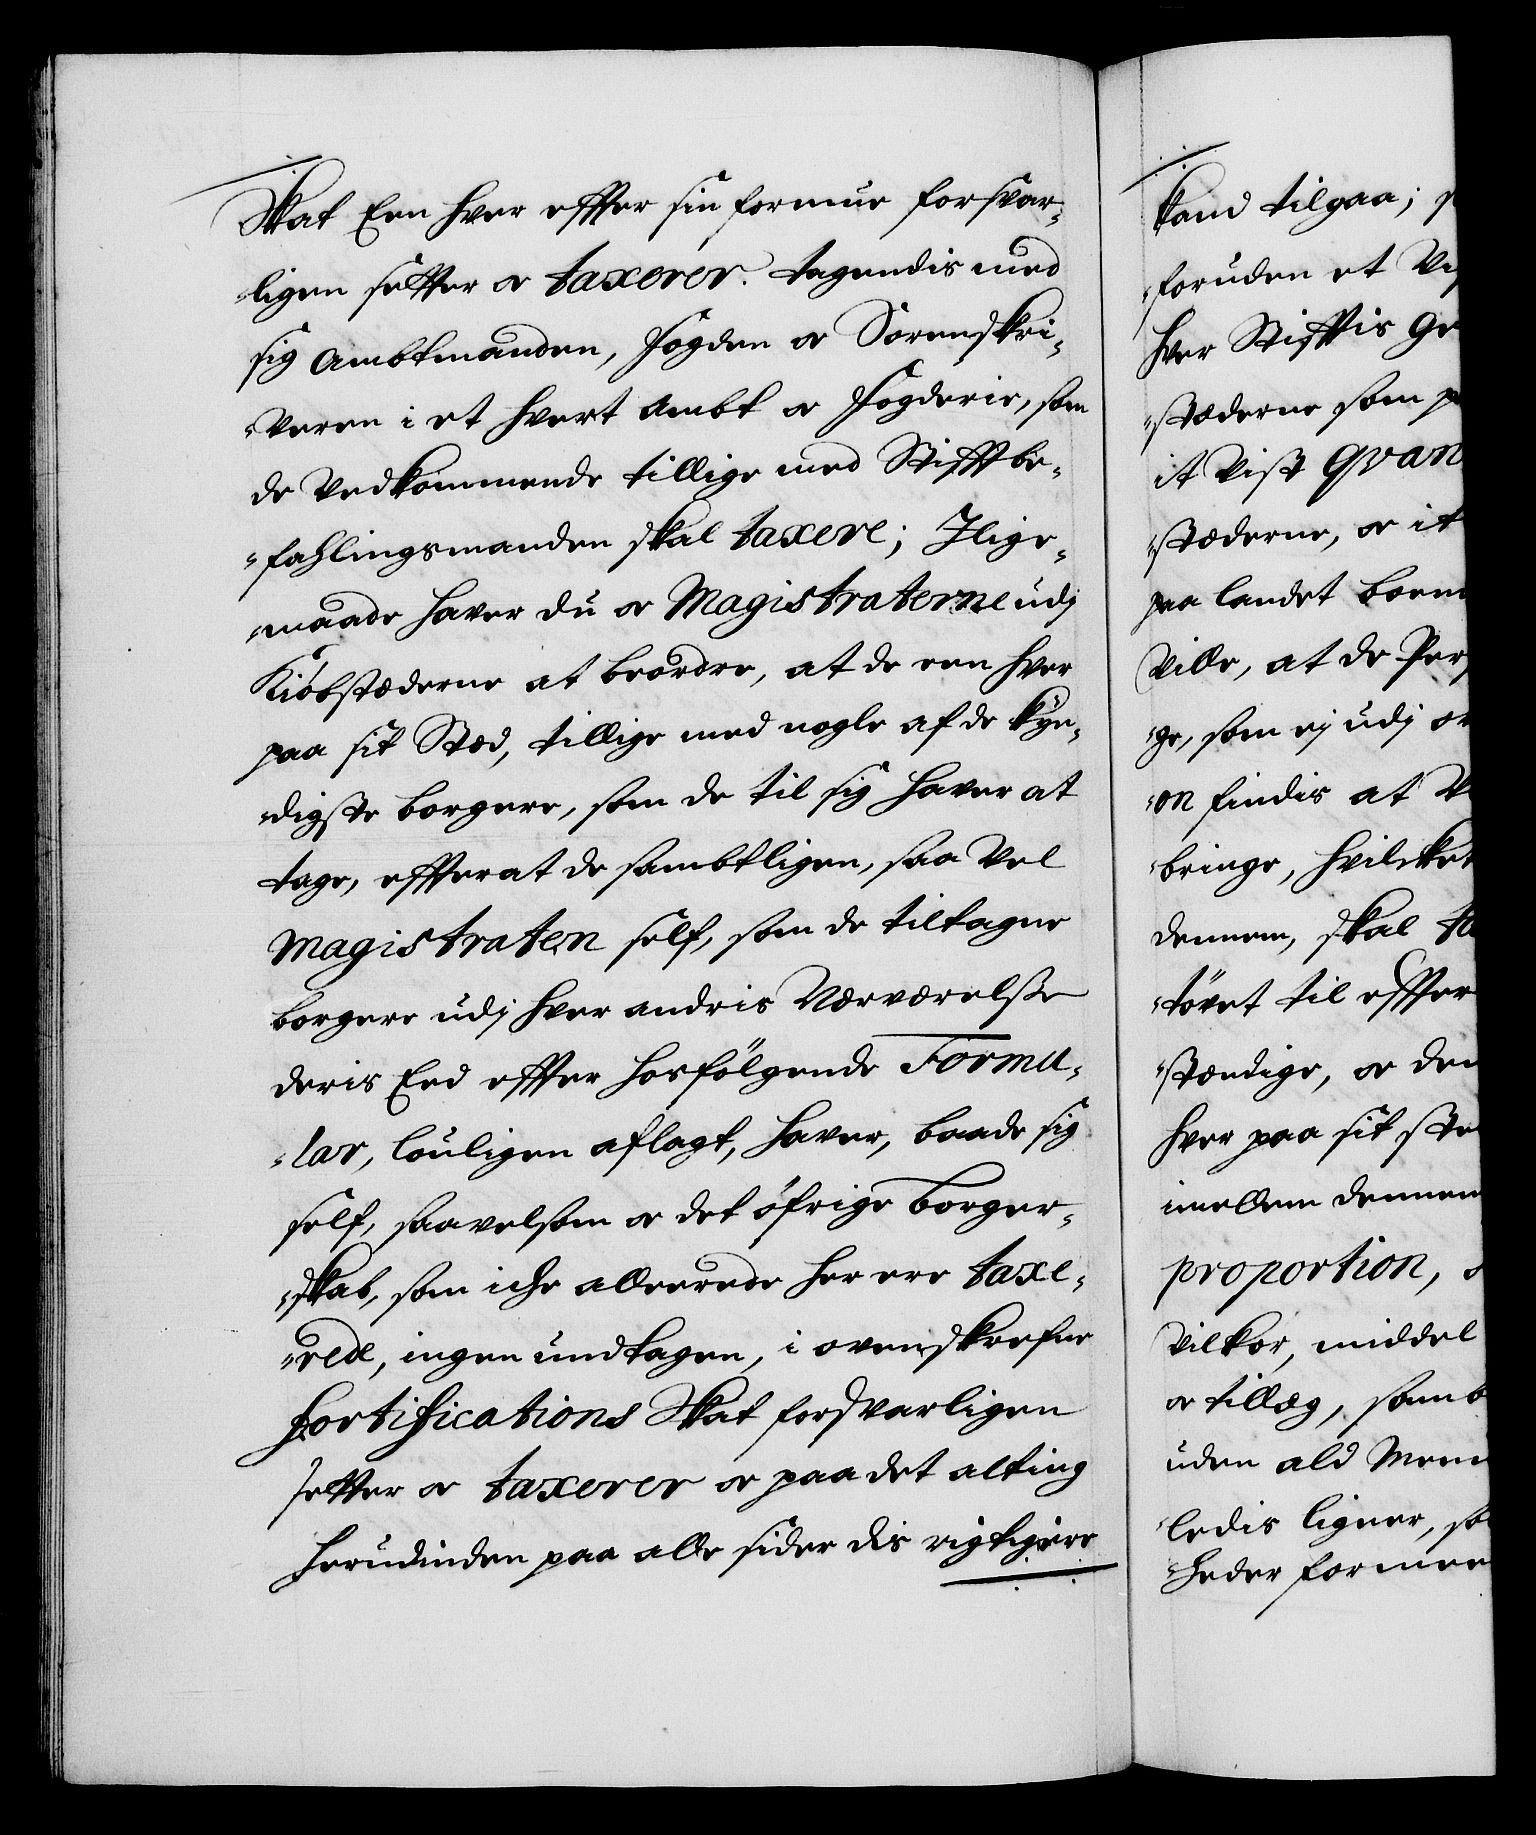 Skat Een hver effter sin formue forsvar-
-ligen setter oc taxerer. tagendis med
sig Ambtmanden, Fogden oc Sorenskri-
-veren i et hvert Ambt oc Fogderie, som
de vedkommende tillige med Stifftbe-
-fahlingsmanden skal taxere; Jlige-
-maade haver du oc Magistraterne udj
Kiöbstæderne at beordre, at de een hver
paa sit Stæd, tillige med nogle af de kyn-
-digste borgere, som de til sig haver at
tage, effterat de sambtligen, saa vel
Magistraten self, som de tiltagne
borgere udj hver andris Nærværelse
deris Eed effter hosfölgende Formu-
-lar, louligen aflagt, haver, baade sig
self, saavelsom oc det öfrige borger-
-skab, som iche allereede her ere taxe-
-rede, ingen undtagen, i ovenskrefne
Fortifications Skat forsvarligen
setter oc taxerer oc paa det alting
herudinden paa alle sider dis rigtigere
kand tilgaa;
-foruden et
hver Stifftis
-stæderne som
it vist Qvan
-stæderne, oc it
paa landet
ville, at de Per
-ge, som ej udj
-on findis at
-bringe, hvilcket
dennem, skal
-töret til effter
-stændige, oc den
hver paa sit
imellem dennem
proportion,
vilkor, middel
oc tillæg, samb
uden ald
-ledis ligner,
-heder formee